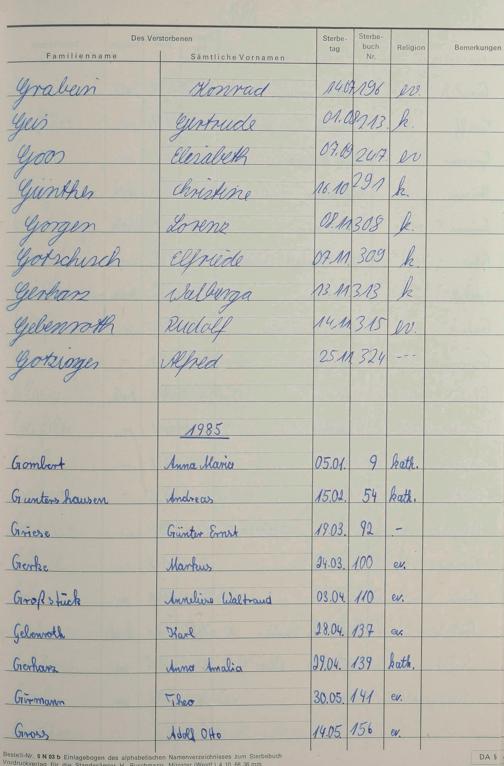 Des Verstorbenen Sterbe- Sterbe-
Familienname Sämtliche Vornamen tag buch Religion Bemerkungen
Nr.
Grabein Konrad 14.07 196 ev
Geis Gertrude 01.08 213 k.
Goos Elisabeth 07.09 247 ev
Günther Christine 16.10 291 k.
Gorgen Lorenz 08.11 308 k.
Gotschisch Elfriede 07.11 309 k.
Gerharz Walberga 13.11 313 k
Gebenroth Rudolf 14.11 315 ev.
Alfred 25.11 324 ---
1985
Gombert Anna Maria 05.01. 9 kath.
Guntershausen Andreas 15.02. 54 kath.
Griese Günter Ernst 19.03. 92 -
Gerke Markus 24.03. 100 ev.
Großstück Anneliese Waltraud 03.04. 110 ev.
Gebenroth Karl 28.04. 137 ev.
Gerharz Anna Amalia 29.04. 139 kath.
Girmann Theo 30.05. 141 ev.
Gross Adolf Otto 14.05. 156 ev.
Bestell-Nr. S N 03 b Einlagebogen des alphabetischen Namenverzeichnisses zum Sterbebuch DA 5